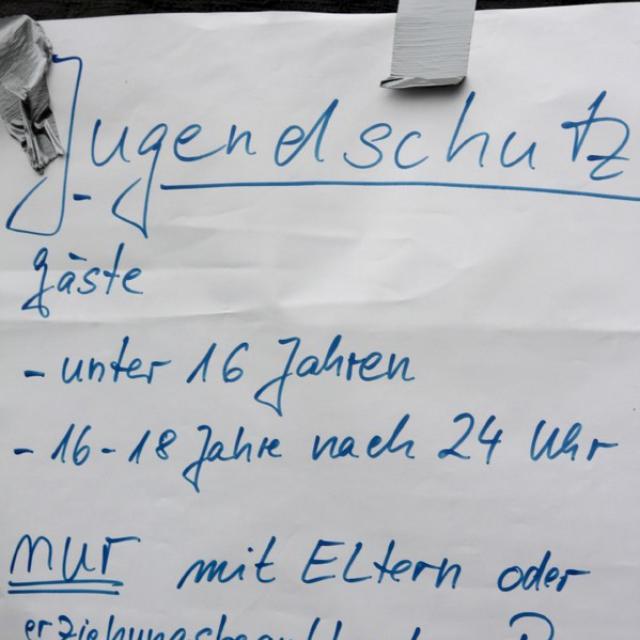 Jugendschutz
Gäste
- unter 16 Jahren
- 16-18 Jahre nach 24 Uhr
nur mit Eltern oder